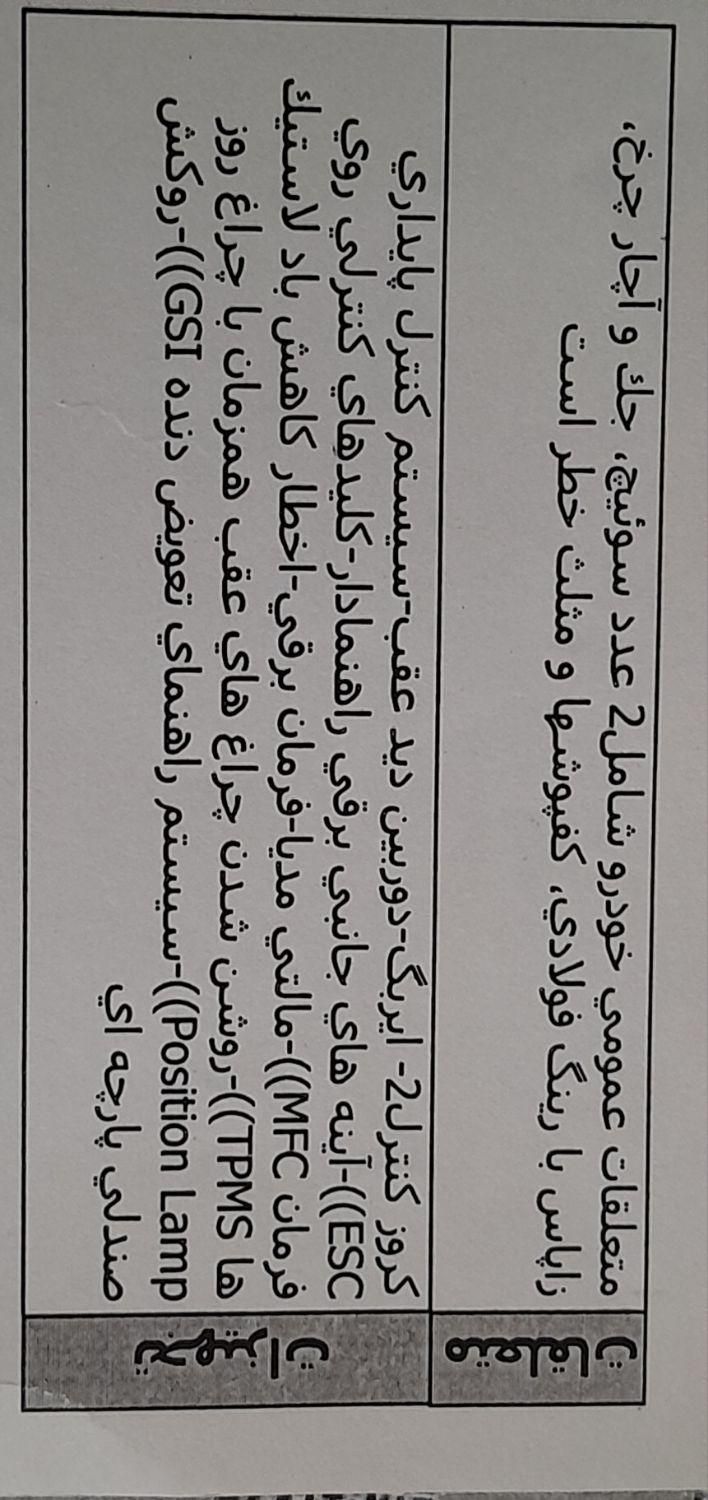 متعلقات
متعلقات عمومي خودرو شامل2 عدد سوئيچ، جك و آچار چرخ،
زاپاس با رينگ فولادي، كفپوشها و مثلث خطر است
تجهيزات
كروز كنترل2- ايربگ-دوربين ديد عقب-سيستم كنترل پايداري
ESC))-آينه هاي جانبي برقي راهنمادار-كليدهاي كنترلي روي
فرمان MFC))-مالتي مديا-فرمان برقي-اخطار كاهش باد لاستيك
ها TPMS))-روشن شدن چراغ هاي عقب همزمان با چراغ روز
Position Lamp))-سيستم راهنماي تعويض دنده GSI))-روكش
صندلي پارچه اي